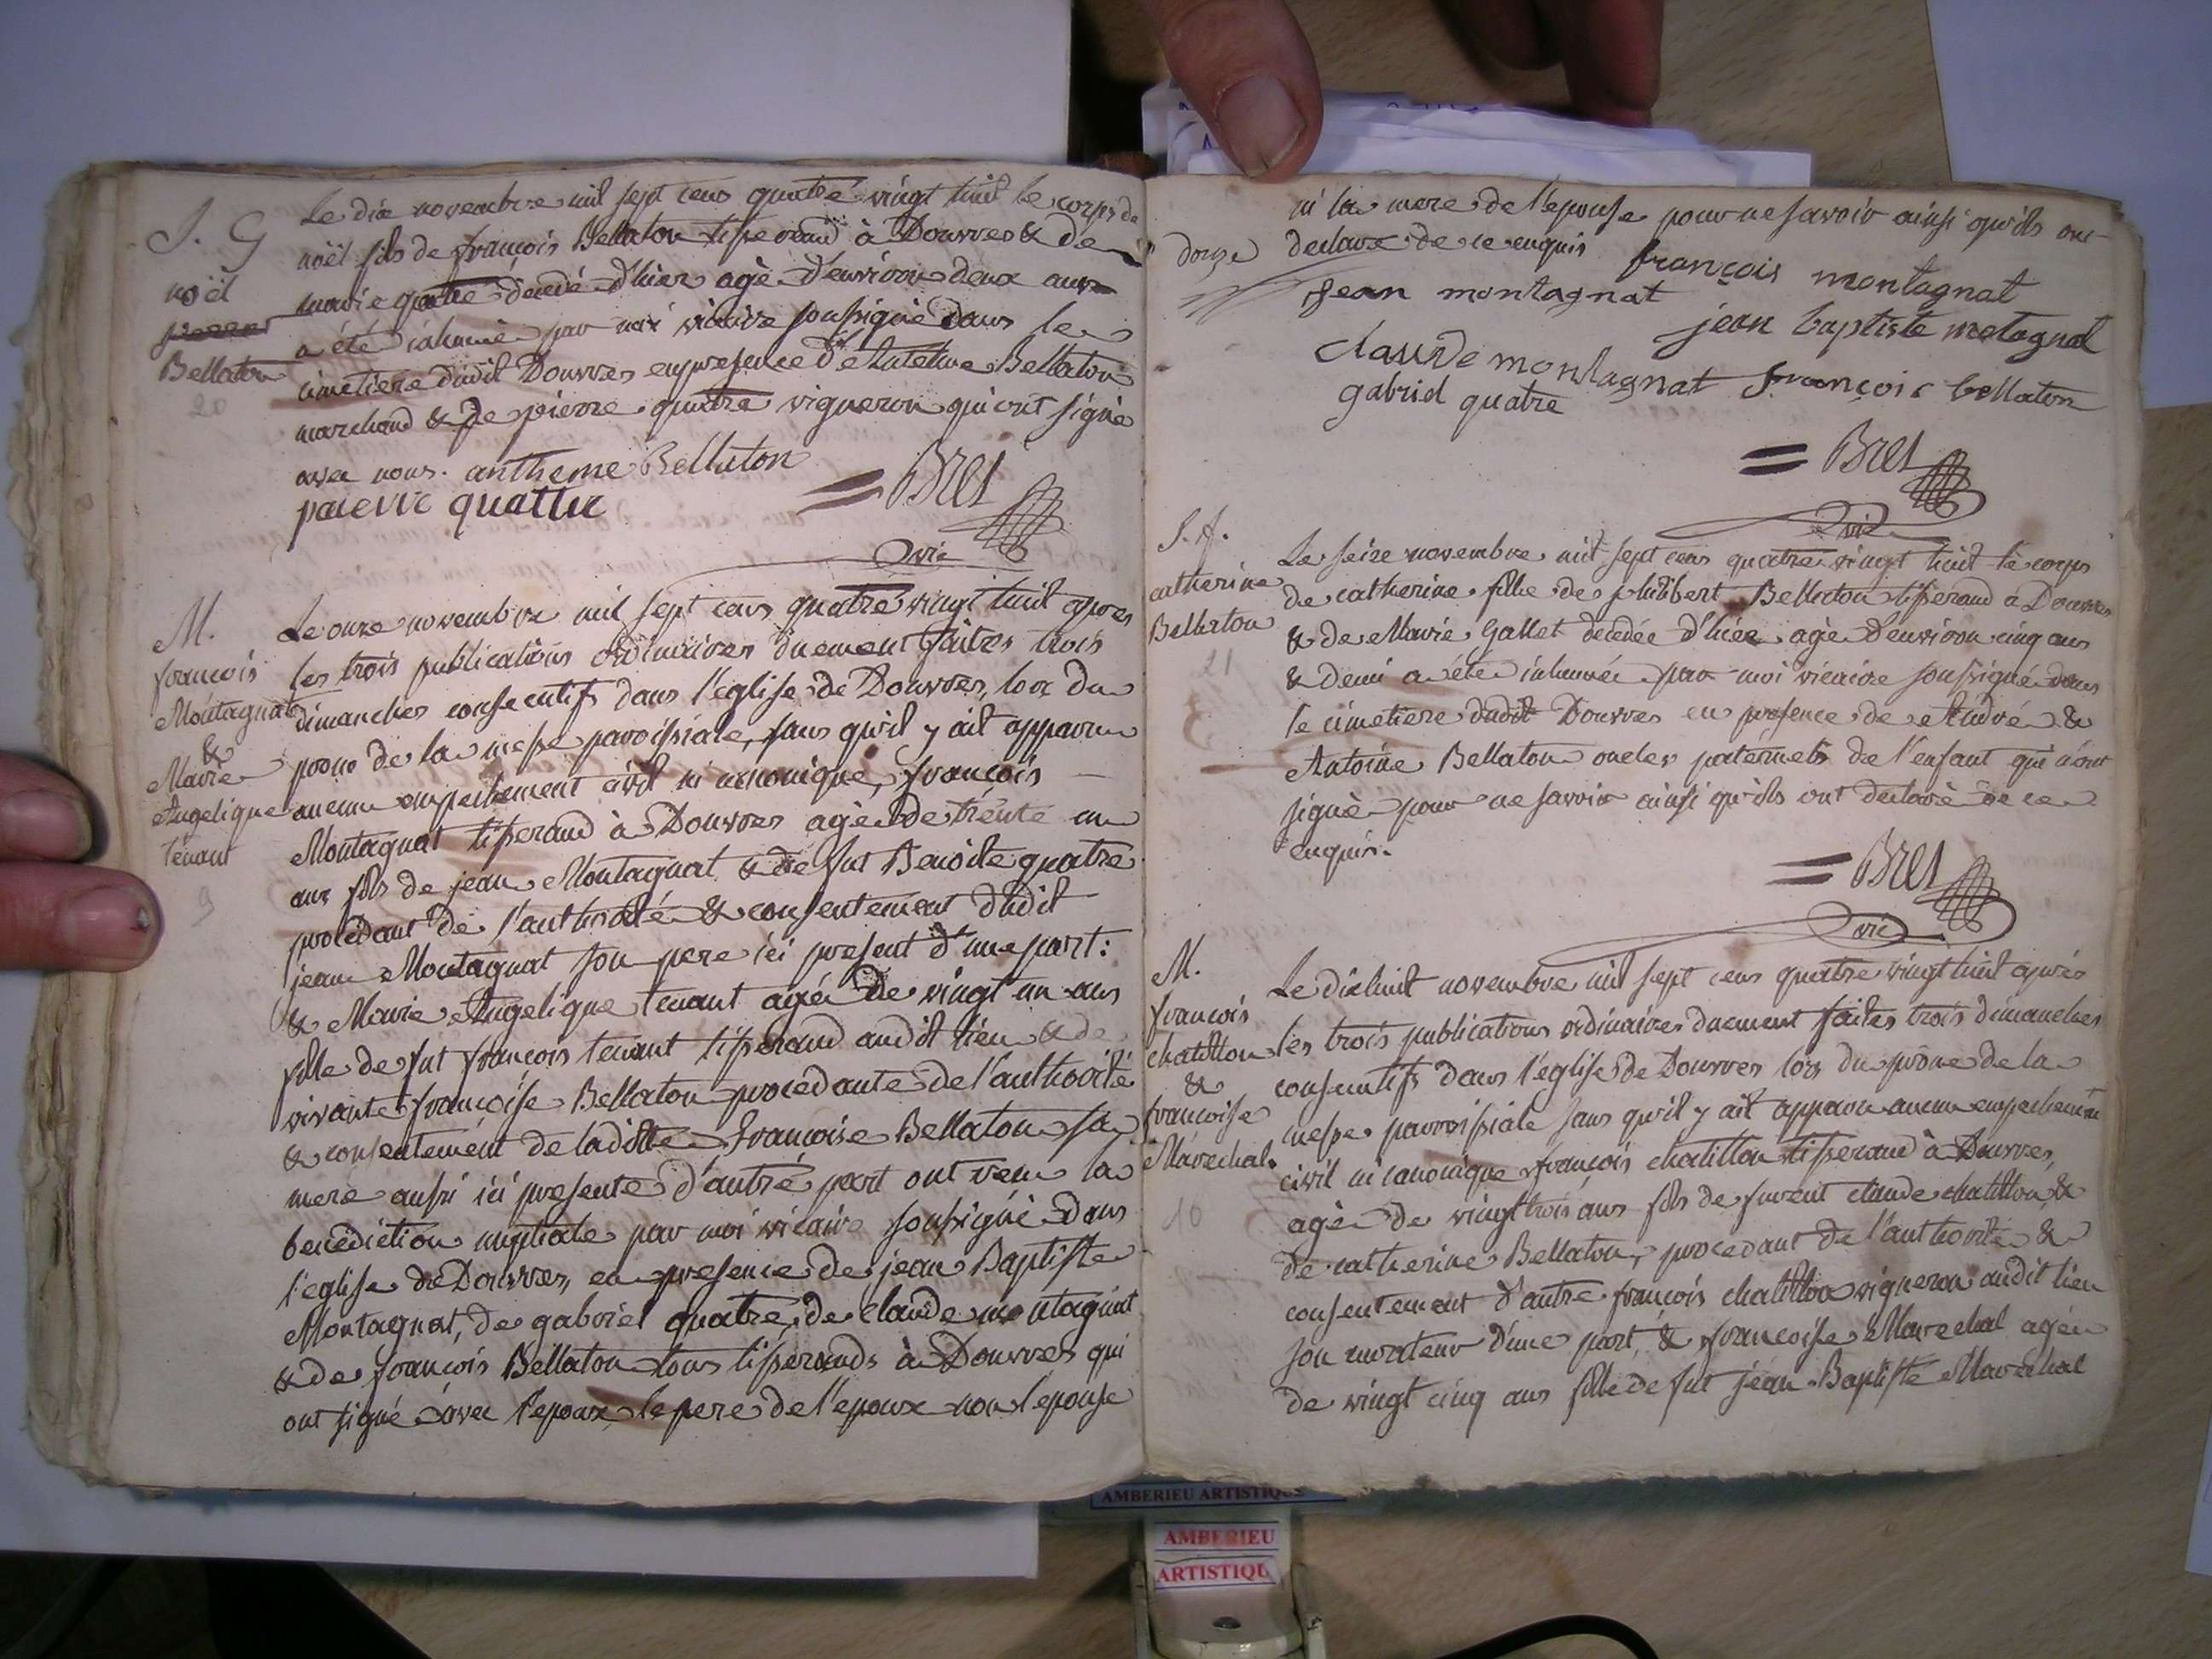 S. G
noël
Bellaton
20
Le dix novembre mil sept cens quatre vingt huit le corps de
noël fils de françois Bellaton tisserand à Douvres & de
marie quatre decedé d'hier agè d'environ deux ans
a été inhumé par moi vicaire soussigné dans le
cimetiere dudit Douvres en presence d'Antelme Bellaton
marchand & de pierre quatre vigneron qui ont signé
avec nous. antheme Bellaton
pierre quattre
= Bret
vic
M.
françois
Montagnat
&
Marie
Angelique
tenant
9
Le onze novembre mil sept cens quatre vingt huit apres
les trois publications ordinaires duement faites trois
dimanches consecutifs dans l'église de Douvres, lors du
prone de la messe paroissiale, sans qu'il y ait apparu
aucun empechement civil ni canonique, françois
Montagnat tisserand à Douvres agé de trente un
ans fils de jean Montagnat & de fut Benoite quatre
procedant de l'authorité & consentement dudit
jean Montagnat son pere ici present d'une part:
& Marie Angelique tenant agée de vingt un ans
fille de fut françois tenant tisserand audit lieu & de
vivante françoise Bellaton procedante de l'authorité
& consentement de laditte françoise Bellaton sa
mere aussi ici presente d'autre part ont recu la
benediction nuptiale par moi vicaire soussigné dans
l'eglise de Douvres, en presence de jean Baptiste
Montagnat, de gabriel quatre, de claude montagnat
& de françois Bellaton tous tisserands à Douvres qui
ont signé avec l'epoux, le pere de l'epoux non l'epouse
douze
ni la mere de l'epouse pour ne savoir ainsi qu'ils ont
declaré de ce enquis françois montagnat
jean montagnat
jean baptiste motagnat
claude montagnat françois bellaton
gabriel quatre
= Bret
vic
S. f.
catherine
Bellaton
21
Le seize novembre mil sept cens quatre vingt huit le corps
de catherine fille de philibert Bellaton tisserand a Douvres
& de Marie Gallet decedée d'hier agée d'environ cinq ans
& demi a été inhumée par moi vicaire soussigné dans
le cimetiere dudit Douvres en presence de André &
Antoine Bellaton oncles paternels de l'enfant qui n'ont
signé pour ne savoir ainsi qu'ils ont declaré de ce
enquis.
= Bret
vic
M.
françois
chatillon
&
françoise
Marechal.
10
Le dixhuit novembre mil sept cens quatre vingt huit après
les trois publications ordinaires duement faites trois dimanches
consecutifs dans l'église de Douvres lors du prône de la
messe paroissiale sans qu'il y ait apparu aucun empechement
civil ni canonique françois chatillon tisserand à Douvres,
agé de vingt trois ans fils de furent claude chatillon &
de catherine Bellaton, procedant de l'authorité &
consentement d'autre françois chatillon vigneron audit lieu
son curateur d'une part, & françoise Marechal agée
de vingt cinq ans fille de fut jean Baptiste Marechal
AMBERIEU ARTISTIQUE
AMBERIEU
ARTISTIQU